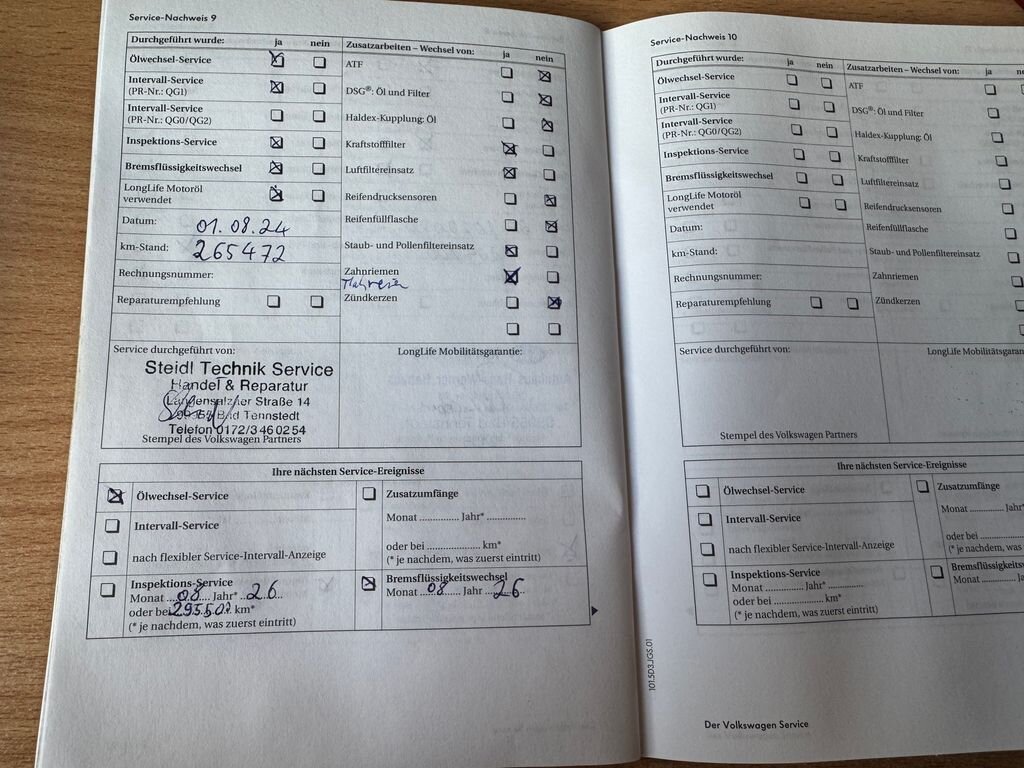 Service-Nachweis 9
Durchgeführt wurde: ja nein
Ölwechsel-Service
Intervall-Service
(PR-Nr.: QG1)
Intervall-Service
(PR-Nr.: QG0/QG2)
Inspektions-Service
Bremsflüssigkeitswechsel
LongLife Motoröl
verwendet
Datum: 01.08.24
km-Stand: 265472
Rechnungsnummer:
Reparaturempfehlung
Zusatzarbeiten – Wechsel von: ja nein
ATF
DSG®: Öl und Filter
Haldex-Kupplung: Öl
Kraftstofffilter
Luftfiltereinsatz
Reifendrucksensoren
Reifenfüllflasche
Staub- und Pollenfiltereinsatz
Zahnriemen
Zündkerzen
Service durchgeführt von:
Steidl Technik Service
Handel & Reparatur
Langensalzaer Straße 14
Bad Tennstedt
Telefon 0172/3460254
Stempel des Volkswagen Partners
LongLife Mobilitätsgarantie:
Ihre nächsten Service-Ereignisse
Ölwechsel-Service
Intervall-Service
nach flexibler Service-Intervall-Anzeige
Inspektions-Service
Monat 08 Jahr* 26
oder bei km*
(* je nachdem, was zuerst eintritt)
Zusatzumfänge
Monat ............... Jahr* ...............
oder bei ..................... km*
(* je nachdem, was zuerst eintritt)
Bremsflüssigkeitswechsel
Monat 08 Jahr 26
Service-Nachweis 10
Durchgeführt wurde: ja nein
Ölwechsel-Service
Intervall-Service
(PR-Nr.: QG1)
Intervall-Service
(PR-Nr.: QG0/QG2)
Inspektions-Service
Bremsflüssigkeitswechsel
LongLife Motoröl
verwendet
Datum:
km-Stand:
Rechnungsnummer:
Reparaturempfehlung
Zusatzarbeiten – Wechsel von: ja
ATF
DSG®: Öl und Filter
Haldex-Kupplung: Öl
Kraftstofffilter
Luftfiltereinsatz
Reifendrucksensoren
Reifenfüllflasche
Staub- und Pollenfiltereinsatz
Zahnriemen
Zündkerzen
Service durchgeführt von:
Stempel des Volkswagen Partners
LongLife Mobilitätsgar
Ihre nächsten Service-Ereignisse
Ölwechsel-Service
Intervall-Service
nach flexibler Service-Intervall-Anzeige
Inspektions-Service
Monat ............... Jahr* ...............
oder bei ..................... km*
(* je nachdem, was zuerst eintritt)
Zusatzumfänge
Monat ............... Jahr*
oder bei .....................
(* je nachdem, was zuerst e
Bremsflüssigkeitsw
Monat ............... Jahr
101.5D3.JGS.01
Der Volkswagen Service